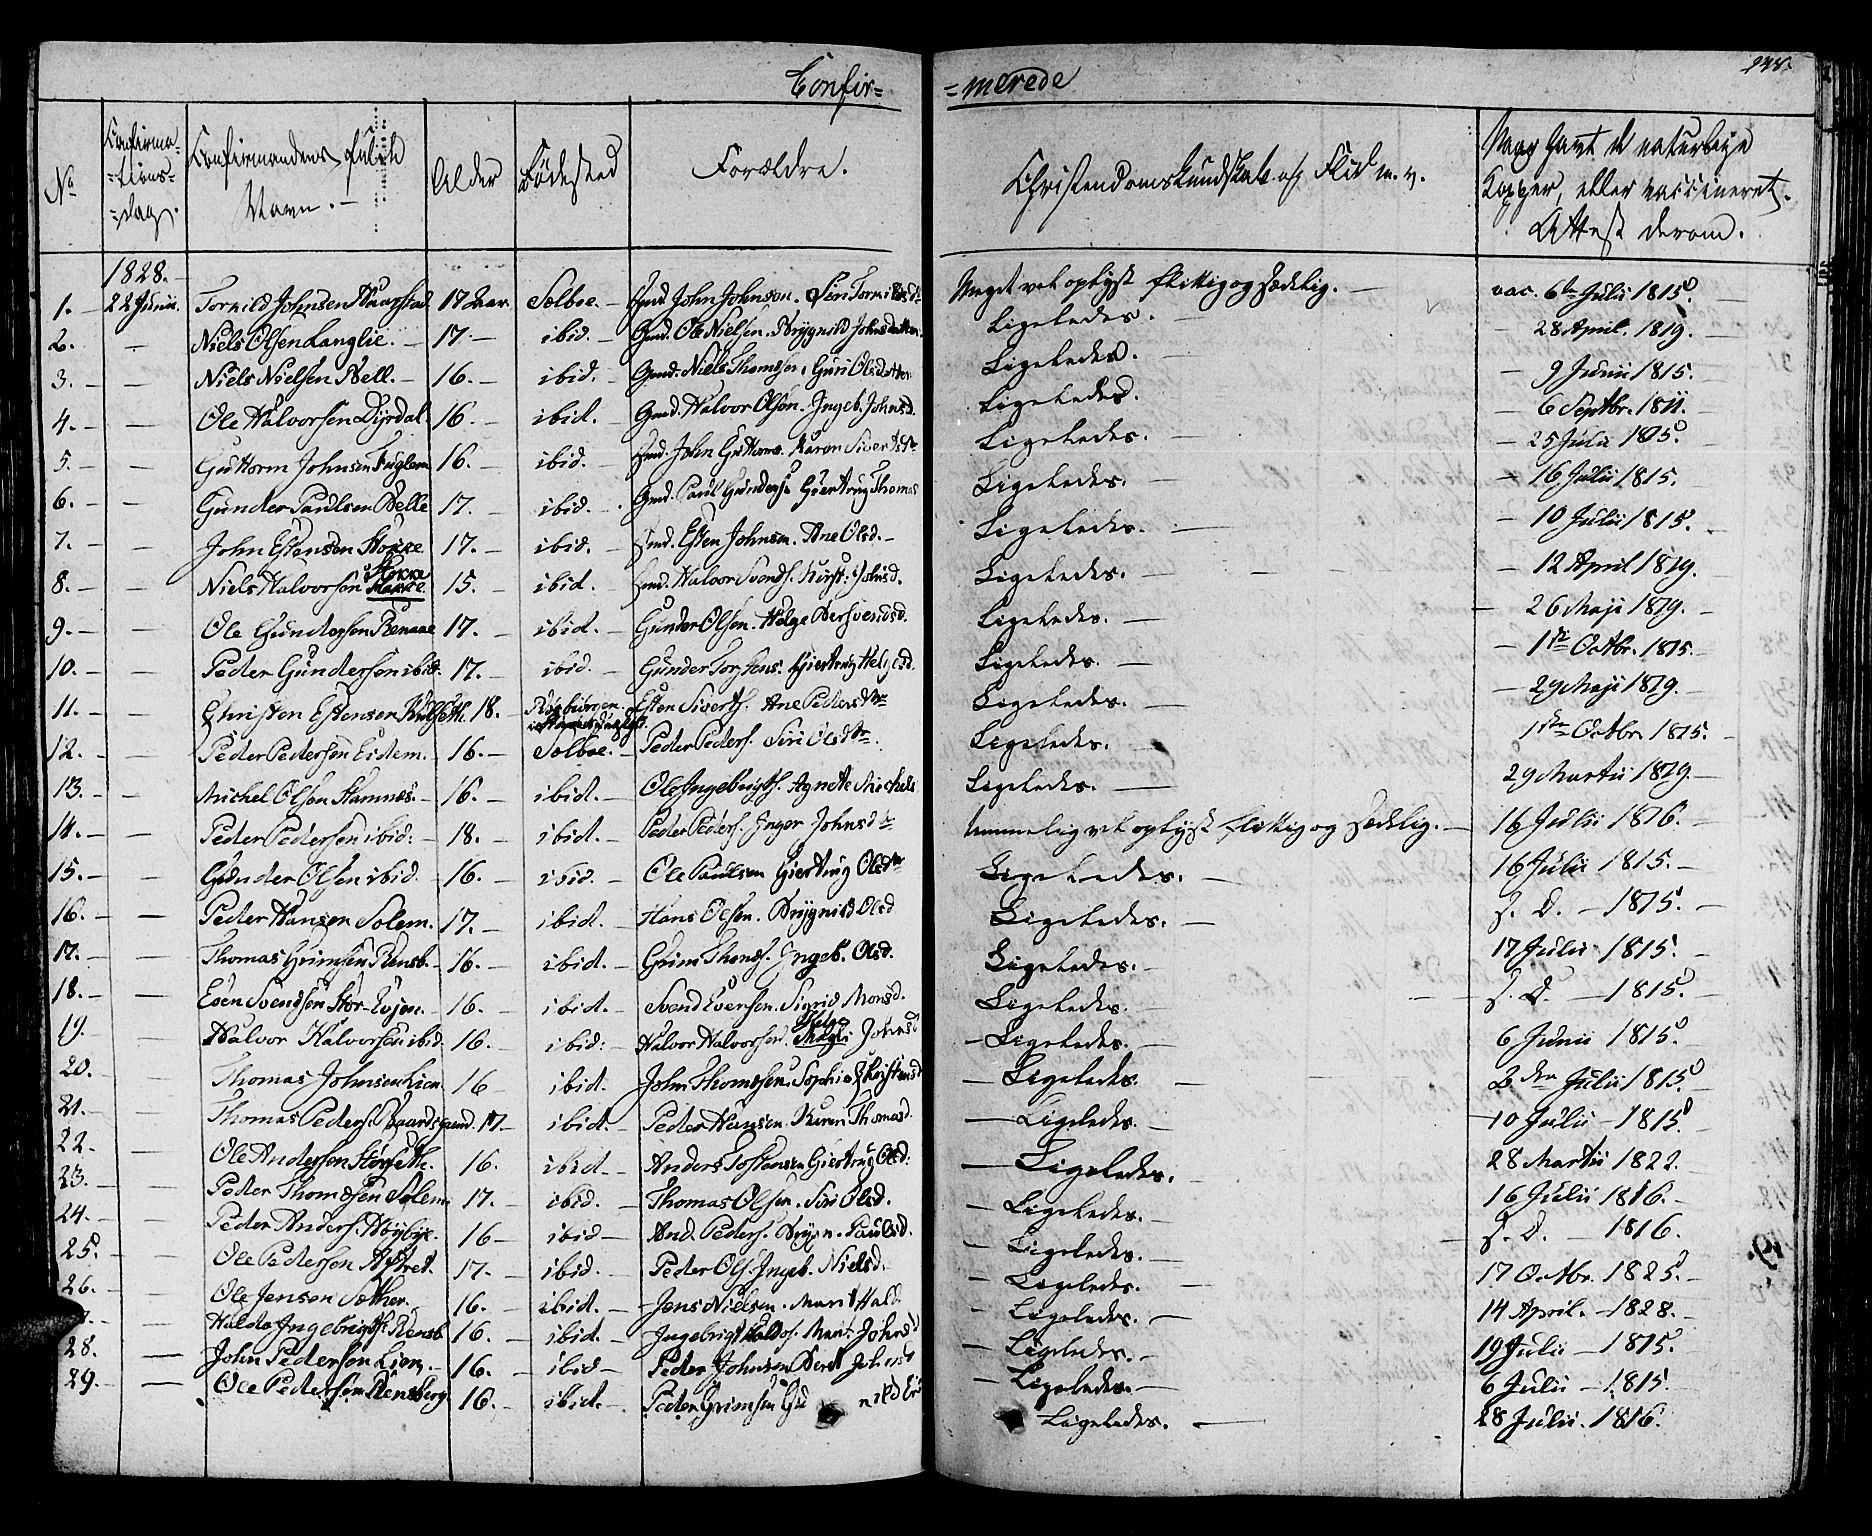 Confir= =merede
No
Confirma-
=tions-
=dag.
Confirmandens fulde
Navn. -
Alder
Födested
Forældre.
Christendomskundskab og Flid m. v.
Naar havt de naturlige
Kopper, eller vaccineret.
Attest derom.
1828.
1. - 22 Junii. Torkild Johnsen Haarstad 17 Aar. Selboe. - John Johnsen. Siri Torkilds Meget vel oplyst flittig og sædelig. - vac. 6te Julii 1815.
2. - Niels Olsen Langlie. - 17. - ibid. - Gmd. Ole Nielsen. Bryngnild Johnsdatter. Ligeledes. - - 28 April. 1819. -
3. - - Niels Nielsen Bell. - 16. - ibid. - Gmd. Niels Thomesen. Guri Olsdatter Ligeledes. - - 9 Junii 1815. -
4. - - Ole Halvorsen Dyrdal. 16. - ibid. - Gmd. Halvor Olsen. Ingeb. Johnsd. Ligeledes. - 6 Septbr. 1811. -
5. - - Guttorm Johnsen Fuglem. 16. - ibid. John Guttorms. Karen Sivertsdr Ligeledes. - - 25 Julii 1815
6. - - Gunder Paulsen Belle 17. - ibid. - Gmd. Paul Gunders. Giertrug Thomas Ligeledes. - - 16 Julii 1815.
7. - - John Estensen Stokke 17. - ibid. - Esten Johnsen. Ane Olsd. - Ligeledes. - - 10 Julii 1815.
8. - - Niels Halvorsen Stokke 15. - ibid. - Halvor Svends. Kirst: Johnsd. Ligeledes. - - 12 April 1819.
9. - - Ole Gundersen Renaae 17. - ibid. - Gunder Olsen. Helge Bersvendsd. Ligeledes. - - 26 Maji 1819. -
10. - - Peder Gundersen ibid. 17. - ibid. - Gunder Torstens. Giertrug Helgesd. Ligeledes. - - 1ste Octbr. 1815. -
11. - - Christen Estensen Kulseth. 18. - Esten Siverts. Ane Pedersdtr Ligeledes. - - 29 Maji 1819. -
12. - - Peder Pedersen Eidem. - 16. - Selboe. - Peder Peders. Siri Olsdtr. Ligeledes. - 1ste Octbr. 1815. -
13. - - Michel Olsen Stamnes. - 16. - ibid. - Ole Ingebrigts. Agnete Michels Ligeledes. - 29 Martii 1819. -
14. - - Peder Pedersen ibid: - 18. - ibid. - Peder Peders. Inger Johnsdtr Temmelig vel oplyst flittig og sædelig. - 16 Julii 1816. -
15. - - Gunder Olsen ibid. - 16. - ibid. - Ole Paulsen Giertrug Olsdtr Ligeledes. - 16 Julii 1815. -
16. - - Peder Hansen Solem. 17. - ibid. - Hans Olsen. Bryngnild Olsd Ligeledes. - s. D. - 1815. -
17. - - Thomas Grimsen Rensb. - 16. - ibid. - Grim Thomes. Ingeb. Olsd. Ligeledes. - 17 Julii 1815. -
18. - - Even Svendsen Stor-Evjen. 16. - ibid. - Svend Evensen. Sigrid Monsd. Ligeledes. - s. D. - 1815. -
19. - Halvor Halvorsen ibid. 16. - ibid: - Halvor Halvorsen. Helge Johnsd - Ligeledes. - 6 Junii 1815. -
20. - Thomas Johnsen Lien. 16 - ibid. - John Thomesen. Sophia Christensd - Ligeledes. - 2den Julii 1815.
21. - - Thomas Peders. Baardsgaard. 17 - ibid. - Peder Hansen. Karen Thomasd. - Ligeledes. - 10 Julii - 1815.
22. - - Ole Andersen Störseth. 16. - ibid. - Anders Tostensen Giertrug Olsd: - Ligeledes. - 28 Martii 1822.
23. - - Peder Thomesen Solem. 17. - ibid. - Thomas Olsen. Siri Olsd. - Ligeledes. - 16 Julii 1816. -
24. - - Peder Anders. Abye. 16 - ibid - And. Peders. Bryn. Paulsd. - Ligeledes. - s. D. - 1816.
25. - - Ole Pedersen Aftret. 17. - ibid. - Peder Ols. Ingeb. Nielsd. - Ligeledes. 17 Octbr. 1825. -
26. - - Ole Jensen Sether. 16. - ibid. - Jens Nielsen. Marit Hald. - Ligeledes. - 14 April. - 1828. -
Haldo Ingebrigts. Rensb. 16. - ibid. - Ingebrigt Haldos. Marit Johnsd - Ligeledes. - 19 Julii - 1815.
28. - John Pedersen Lien. - 16. - ibid - Peder Johnsen Beret Johnsd - Ligeledes. - 6 Julii - 1815.
29. - - Ole Pedersen Rensberg 16. - ibid. - Peder Grimsen Gu Ligeledes. - 28 Julii. 1816.